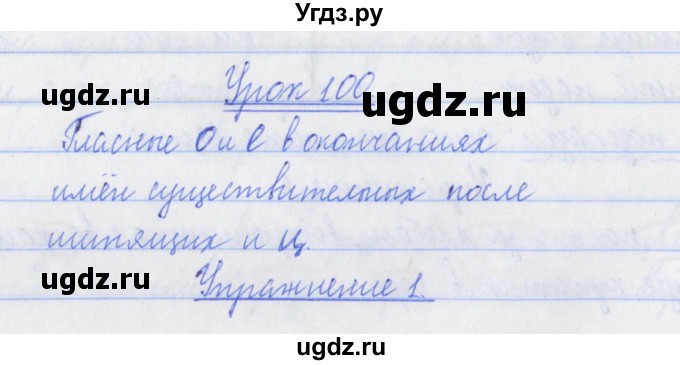 Угдз.ру
ugdz.ru Урок 100 ugdz.ru
Гласные О и Е в окончаниях
имён существительных после
шипящих и Ц.
ugdz.ru ugdz.ru
Упражнение 1.
ugdz.ru